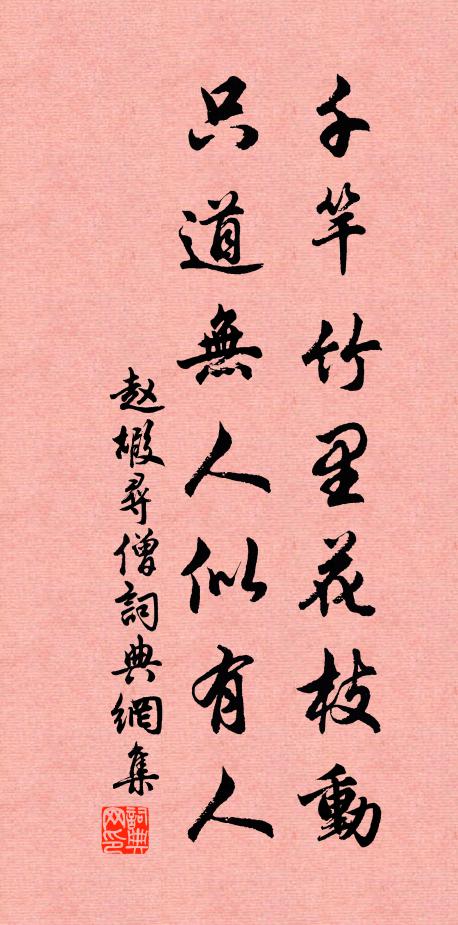 千竿竹里花枝動
只道無人似有人
赵嘏尋僧詞典網集
詞典
网印